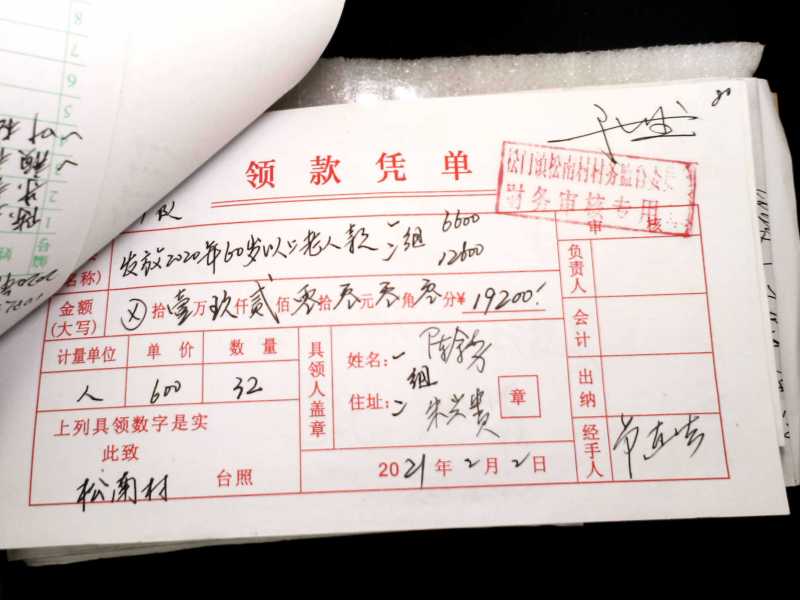 领款凭单
松门镇松南村村务监督委员
财务审核专用
名称)
发放2020年60岁以上老人款 一组 6600
二 12600
审核
负责人
金额
(大写)
⊗拾壹万玖仟贰佰零拾零元零角零分¥19200.
会计
计量单位 单价 数量
人 600 32
具领人盖章
姓名:一
组
住址:二 朱兴贵
章
出纳
上列具领数字是实
此致
松南村 台照
2021年2月2日
经手人
8
7
6
5
2
1